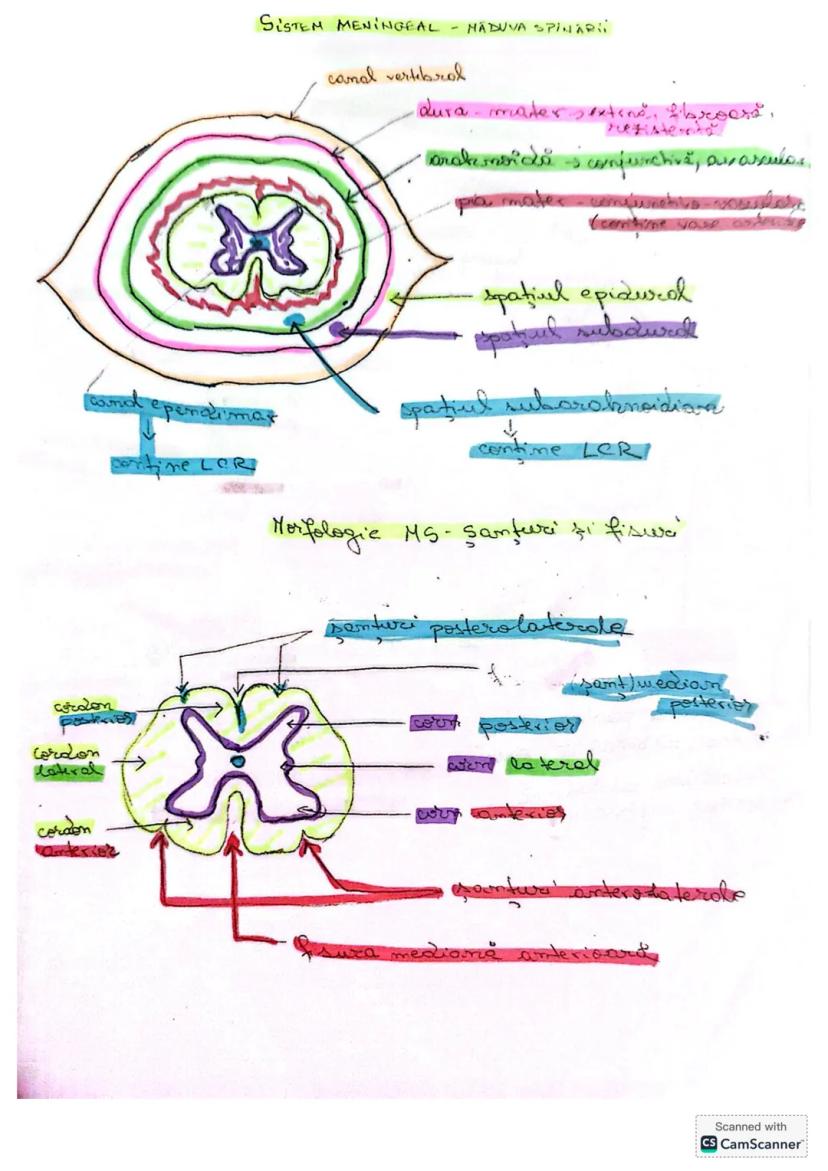 SISTEM MENINGEAL - MĂDUVA SPINĂRII
canal vertebral
dura - mater → externă, fibroasă,
rezistentă
arahnoidă → conjunctivă, avascular
pia mater - conjunctivo-vasculară
(conține vase
spațiul epidural
spațiul subdural
canal ependimar
spațiul subarahnoidian
conține LCR
conține LCR
Morfologie MS - Șanțuri și fisuri
șanțuri posterolaterale
șanț median
posterior
cordon
posterior
corn posterior
cordon
lateral
corn lateral
corn anterior
cordon
anterior
șanțuri anterolaterale
fisura mediană anterioară
Scanned with
CS CamScanner